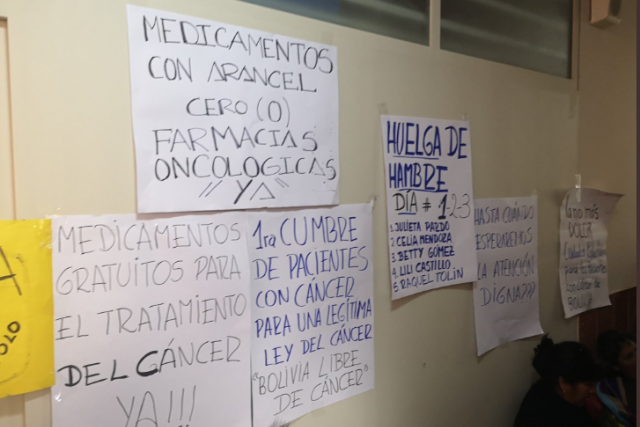 MEDICAMENTOS
CON ARANCEL
CERO (0)
FARMACIAS
ONCOLOGICAS
"YA"
MEDICAMENTOS
GRATUITOS PARA
EL TRATAMIENTO
DEL CÁNCER
YA!!!
1ra CUMBRE
DE PACIENTES
CON CÁNCER
PARA UNA LEGÍTIMA
LEY DEL CÁNCER
"BOLIVIA LIBRE
DE CÁNCER"
HUELGA DE
HAMBRE
DÍA # 1 2 3
1 JULIETA PARDO
2 CELIA MENDOZA
3 BETTY GÓMEZ
4 LILI CASTILLO
5 RAQUEL TOLIN
HASTA CUÁNDO
ESPERAREMOS
LA ATENCIÓN
DIGNA???
no más
DOLOR